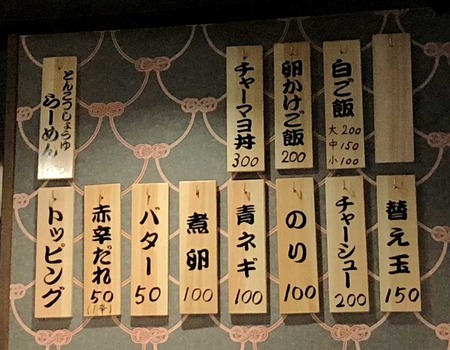 白ご飯
大 200
中 150
小 100
卵かけご飯
200
チャーマヨ丼
300
とんこつしょうゆ
らーめん
替え玉
150
チャーシュー
200
のり
100
青ネギ
100
煮卵
100
バター
50
赤辛だれ
50
(1辛)
トッピング